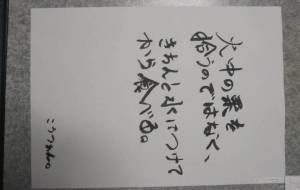 火中の栗を
拾うのではなく、
きちんと水につけて
から食べる。